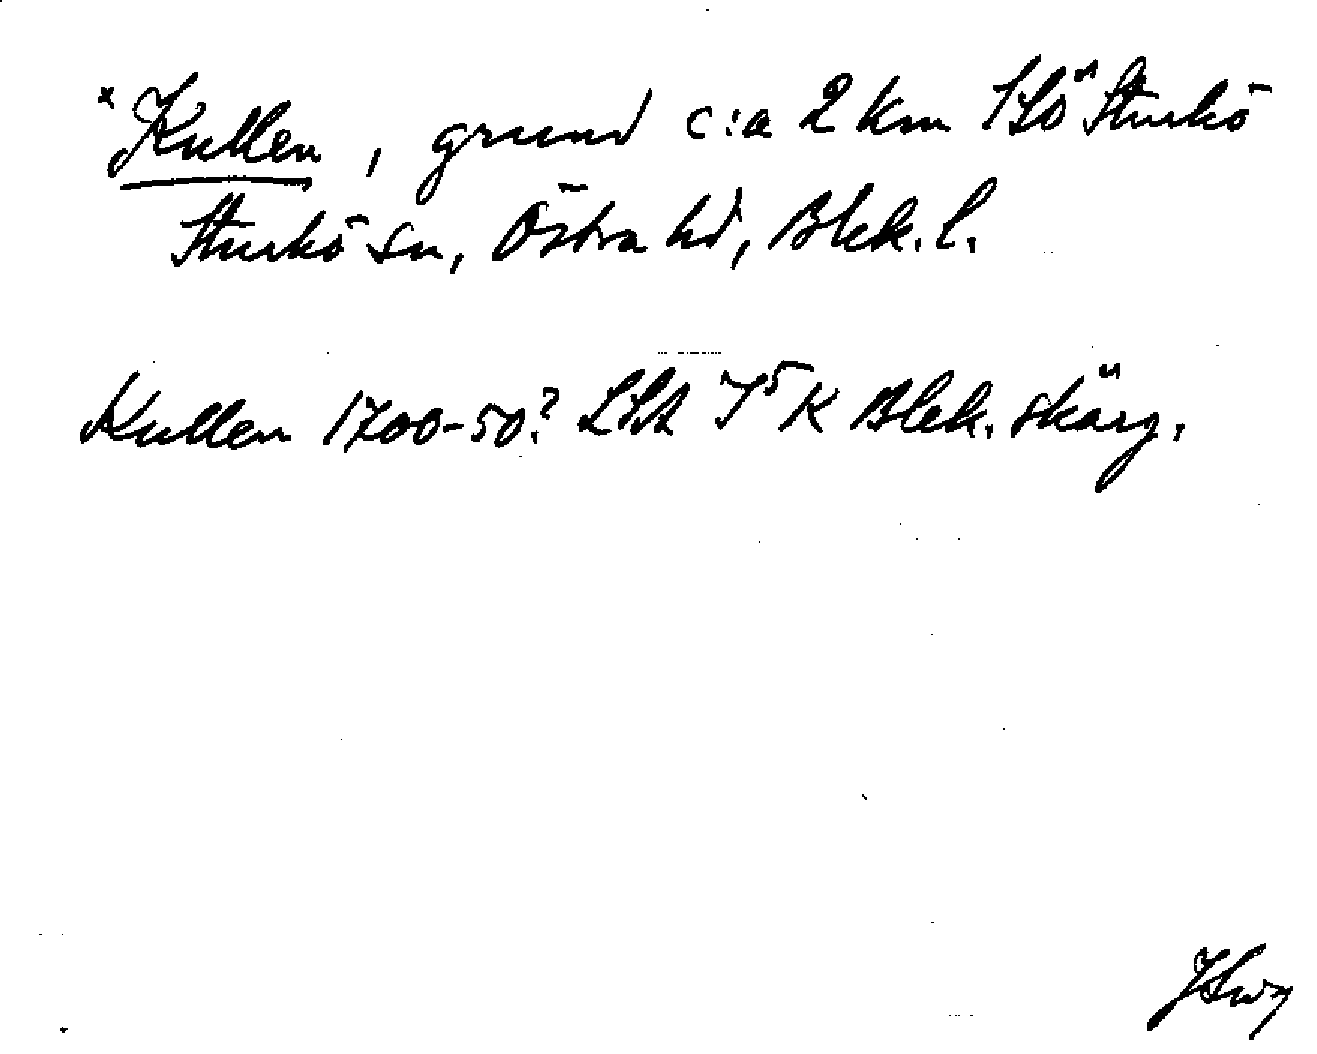 *Kullen, grund c:a 2 km SSÖ Sturkö
Sturkö sn, Östra hd, Blek. l.
Kullen 1700-50? LSA I⁵ K Blek. skärg.